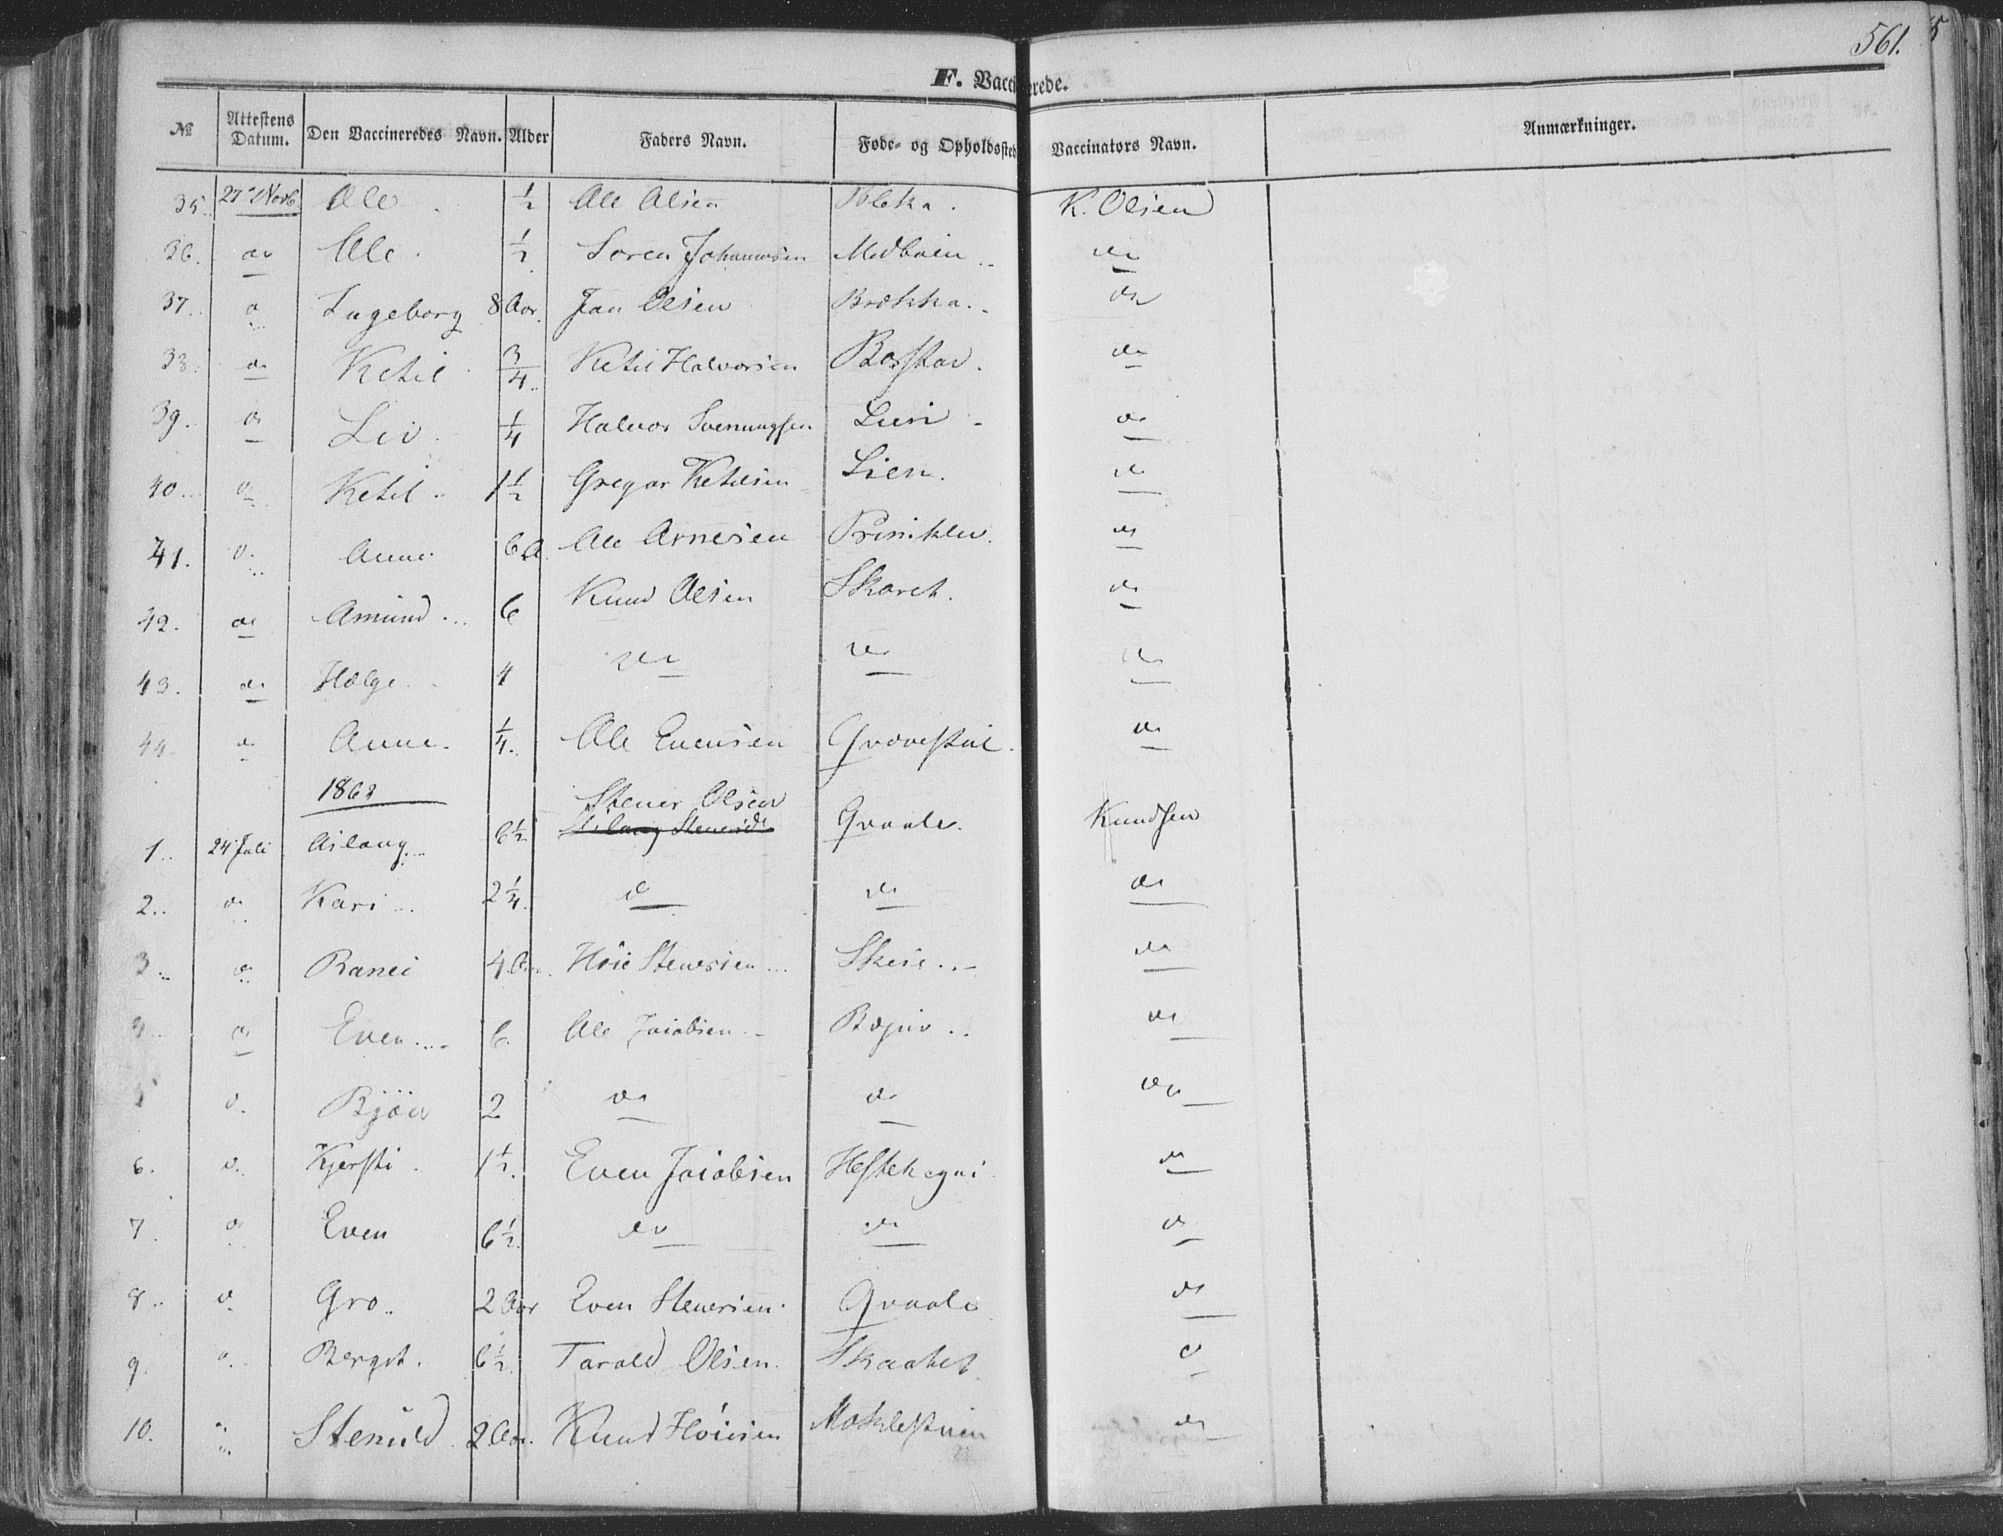 561.
F. Vaccinerede.
№ Attestens Datum. Den Vaccineredes Navn. Alder Faders Navn. Føde- og Opholdssted Vaccinators Navn. Anmærkninger.
35. 27de Novb. Ole ½ Ole Olsen K. Olsen
36. do Ole ½ Soren Johannesen Midboien do
37. do Ingeborg 8 Aar. Jan Olsen Brekka. do
38. do Ketil ¾ Ketil Halvorsen do
39. do Liv ¼ Halvor Svenungsen do
40. do Ketil 1½ Gregar Ketilsen Lien. do
41. do Anne 6 A. Ole Arnesen do
42. do Amund 6 Knud Olsen Skoret. do
43. do Helge 4 do do do
44. do Anne ¼ Ole Evensen do
1862
1. 24 Juli Aslaug 6½ Stener Olsen Qvaale. Knudsen
2. do Kari 2¼ do do do
3. do Ranei 4 Aar. Høie Stenersen Skeie do
4. do Even 6 Ole Jacobsen do
5 do Bjøn 2 do do do
6. do Kjersti 1½ Even Jacobsen do
7 do Even 6½ do do do
8. do Gro 2 Aar Even Stenersen. Qvaale do
9. do Bergit. 6½ Tarald Olsen. Skaatet do
10. do Stenuld 2 Aar. Knud Høiesen do